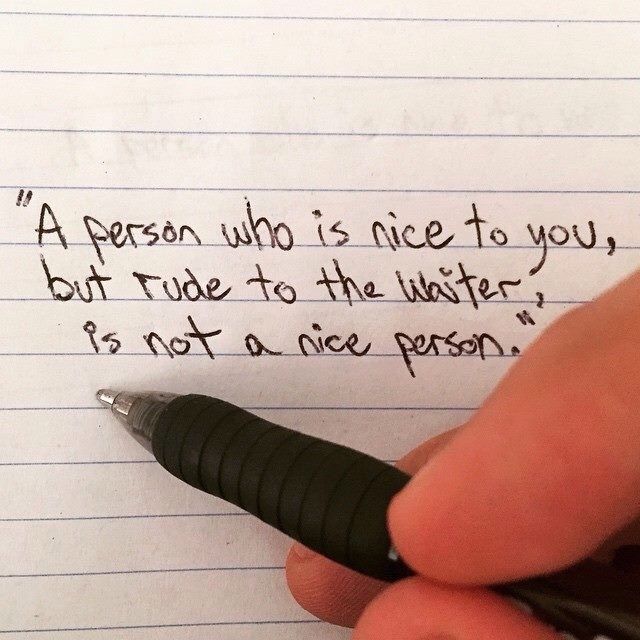 "A person who is nice to you,
but rude to the waiter,
is not a nice person."